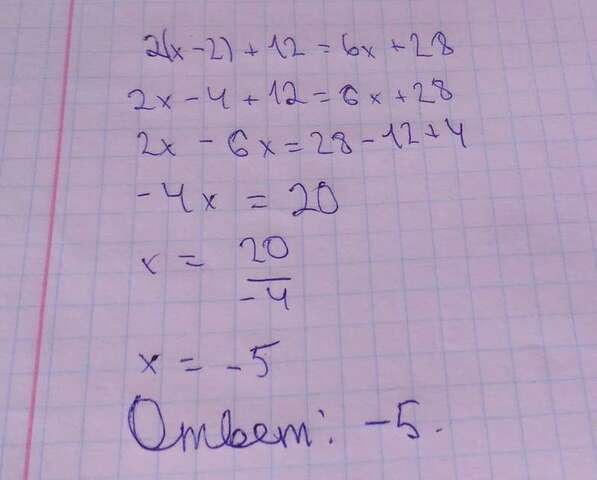 2(x - 2) + 12 = 6x + 28
2x - 4 + 12 = 6x + 28
2x - 6x = 28 - 12 + 4
-4x = 20
x = 20/-4
x = -5
Ответ: -5.